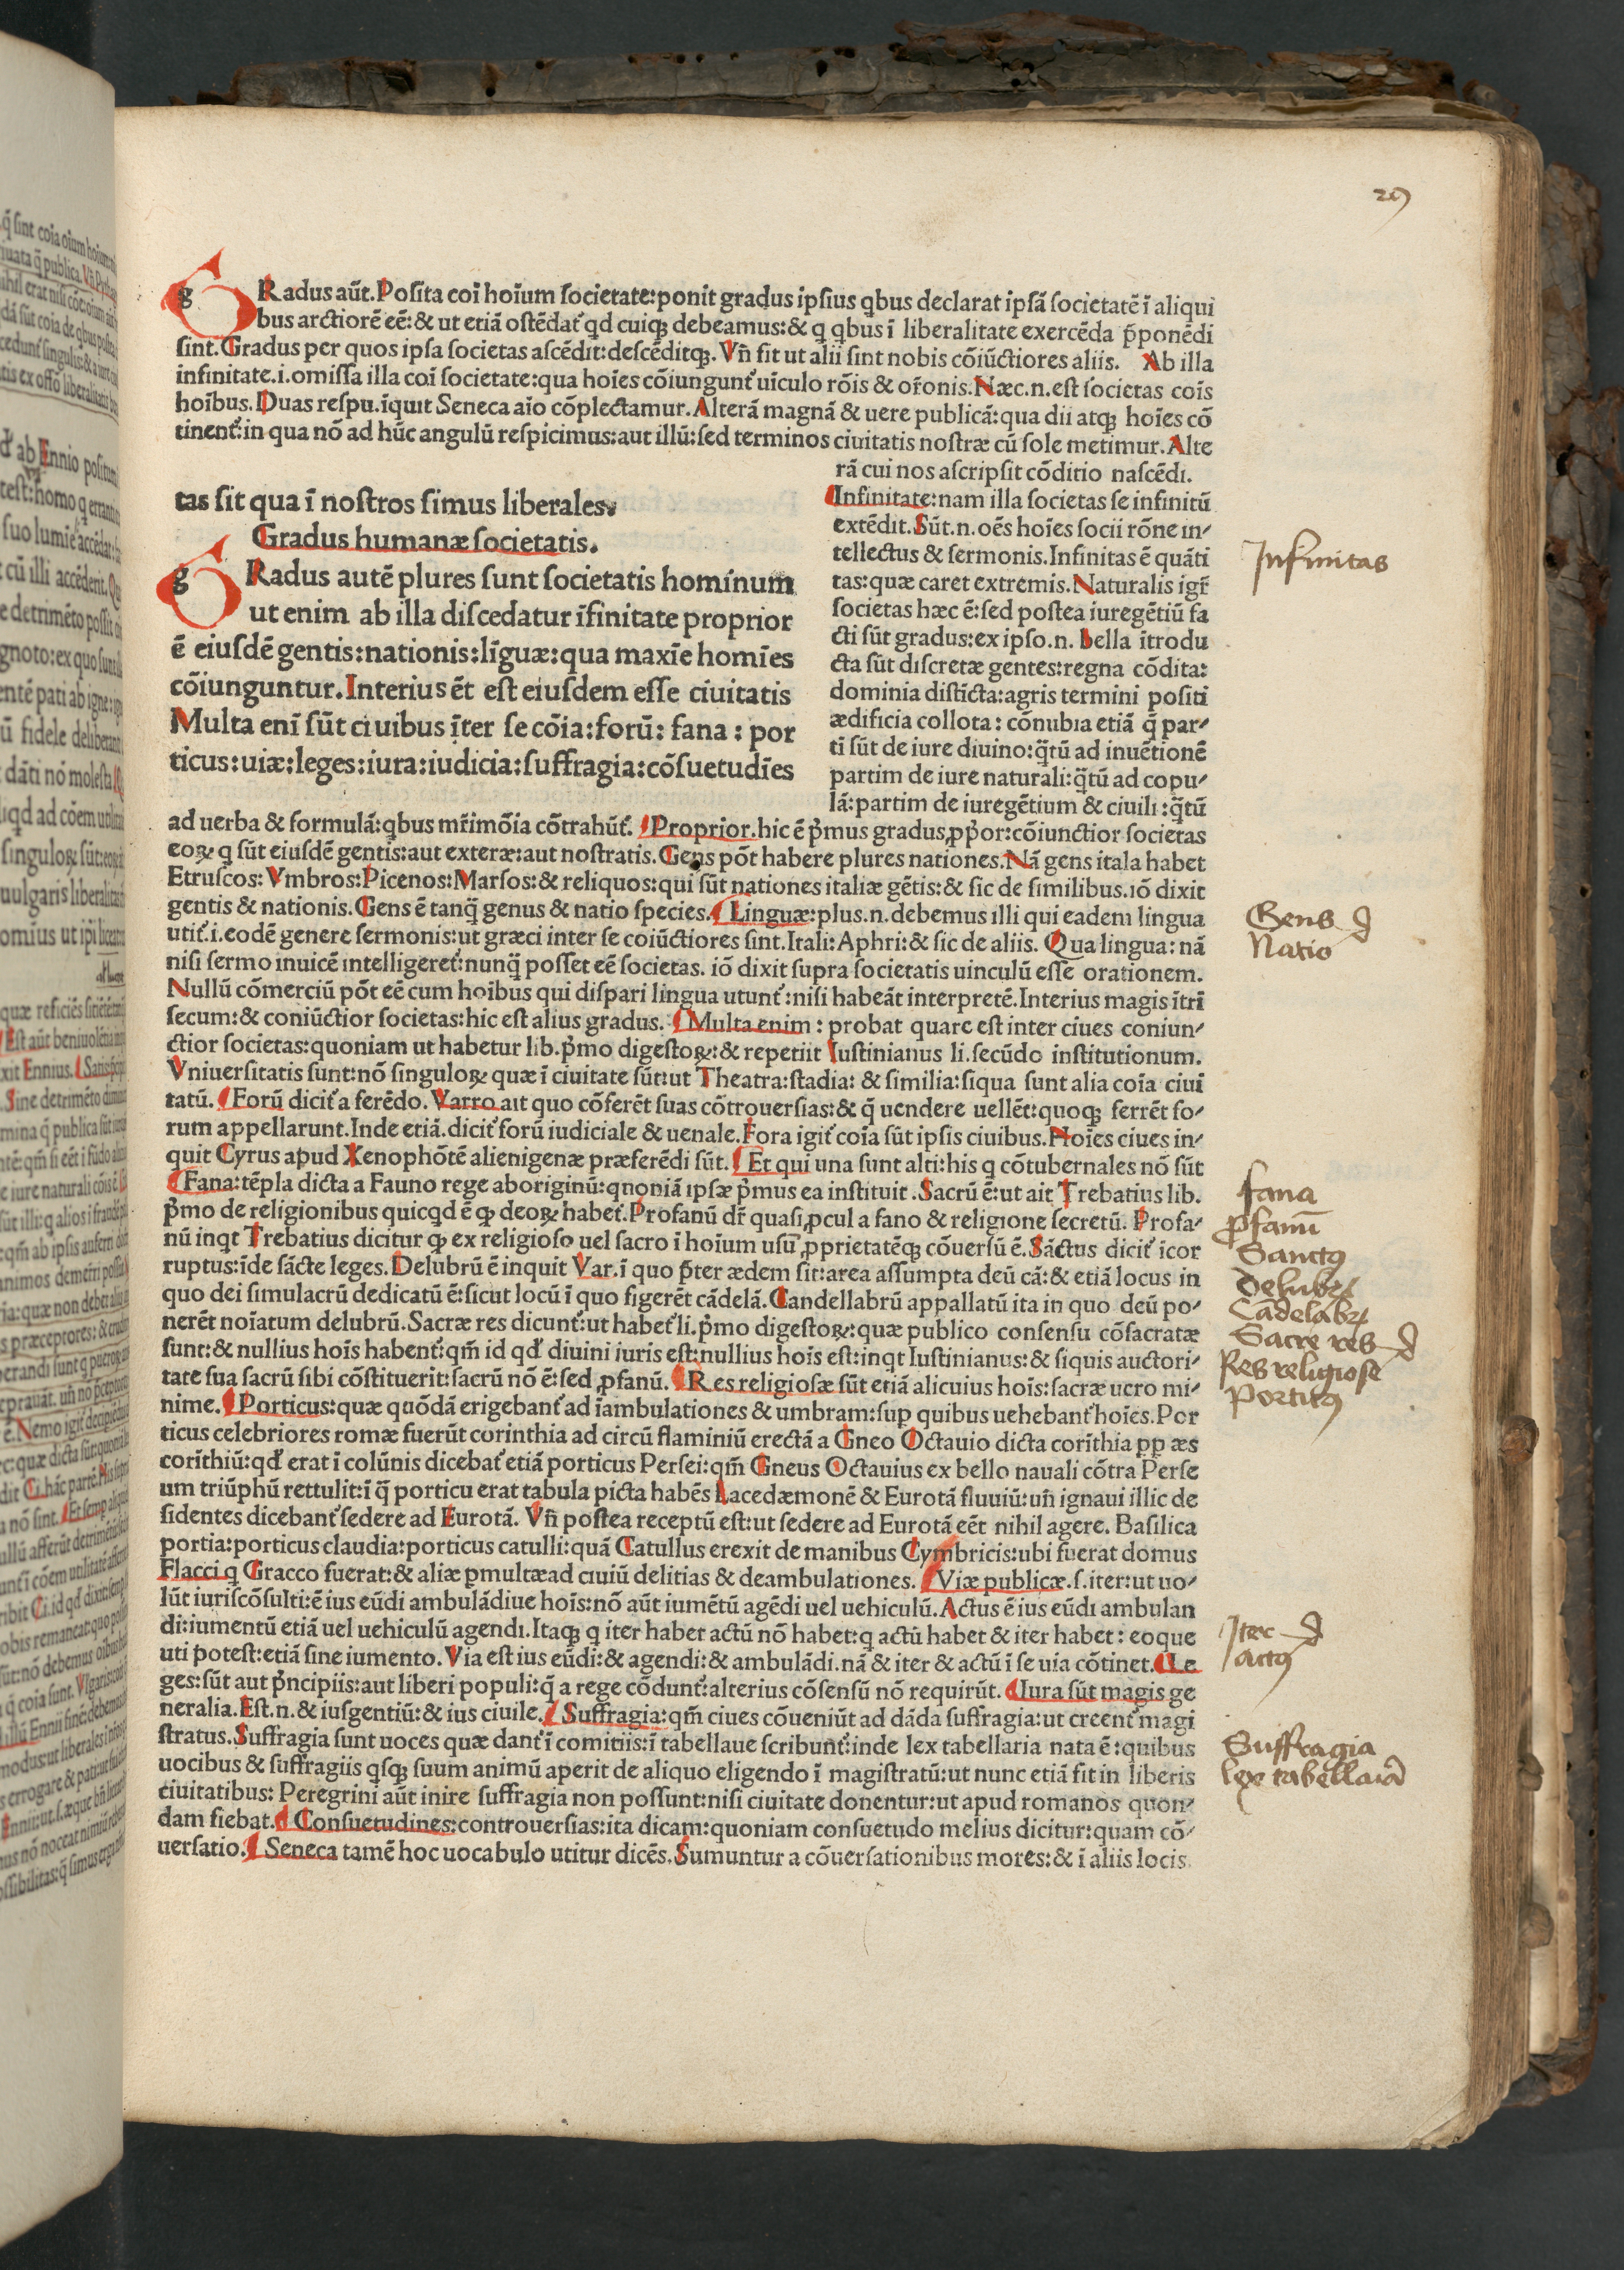 29
GRadus aūt. Posita coī hoīum societate: ponit gradus ipsius qbus declarat ipsā societatē ī aliqui
bus arctiorē eē: & ut etiā ostēdat̄ qd cuiqꝫ debeamus: & q qbus ī liberalitate exercēda p̄ponēdi
sint. Gradus per quos ipsa societas ascēdit: descēditqꝫ. Vn̄ fit ut alii sint nobis cōiūctiores aliis. Ab illa
infinitate.i. omissa illa coī societate: qua hoīes cōiungunt̄ uīculo rōis & or̄onis. Næc.n. est societas coīs
hoībus. Duas respu. īquit Seneca aīo cōplectamur. Alterā magnā & uere publicā: qua dii atqꝫ hoīes cō
tinent̄: in qua nō ad hūc angulū respicimus: aut illū: sed terminos ciuitatis nostræ cū sole metimur. Alte
rā cui nos ascripsit cōditio nascēdi.
Infinitate: nam illa societas se infinitū
extēdit. Sūt.n. oēs hoīes socii rōne in⸗
tellectus & sermonis. Infinitas ē quāti
tas: quæ caret extremis. Naturalis igr̄
societas hæc ē: sed postea iuregētiū fa
cti sūt gradus: ex ipso.n. bella ītrodu
cta sūt discretæ gentes: regna cōdita:
dominia distīcta: agris termini positi
ædificia collota: cōnubia etiā q̄ par⸗
ti sūt de iure diuino: q̄tū ad inuētionē
partim de iure naturali: q̄tū ad copu⸗
lā: partim de iuregētium & ciuili: q̄tū
tas sit qua ī nostros simus liberales.
Gradus humanæ societatis.
GRadus autē plures sunt societatis hominum
ut enim ab illa discedatur īfinitate proprior
ē eiusdē gentis: nationis: līguæ: qua maxīe homīes
cōiunguntur. Interius ēt est eiusdem esse ciuitatis
Multa enī sūt ciuibus īter se cōia: forū: fana: por
ticus: uiæ: leges: iura: iudicia: suffragia: cōsuetudīes
ad uerba & formulā: qbus mr̄imōia cōtrahūt̄. Proprior. hic ē p̄mus gradus, ꝓp̄or: cōiunctior societas
eoꝝ q sūt eiusdē gentis: aut exteræ: aut nostratis. Gens pōt habere plures nationes. Nā gens itala habet
Etruscos: Vmbros: Picenos: Marsos: & reliquos: qui sūt nationes italiæ gētis: & sic de similibus. iō dixit
gentis & nationis. Gens ē tanq̄ genus & natio species. Linguæ: plus.n. debemus illi qui eadem lingua
utit̄.i. eodē genere sermonis: ut græci inter se coiūctiores sint. Itali: Aphri: & sic de aliis. Qua lingua: nā
nisi sermo inuicē intelligeret̄: nunq̄ posset eē societas. iō dixit supra societatis uinculū esse orationem.
Nullū cōmerciū pōt eē cum hoībus qui dispari lingua utunt̄: nisi habeāt interpretē. Interius magis ītrī
secum: & coniūctior societas: hic est alius gradus. Multa enim: probat quare est inter ciues coniun⸗
ctior societas: quoniam ut habetur lib. p̄mo digestoꝝ: & repetiit Iustinianus li. secūdo institutionum.
Vniuersitatis sunt: nō singuloꝝ quæ ī ciuitate sūt: ut Theatra: stadia: & similia: siqua sunt alia coīa ciui
tatū. Forū dicit̄ a ferēdo. Varro ait quo cōferēt suas cōtrouersias: & q̄ uendere uellēt: quoqꝫ ferrēt fo⸗
rum appellarunt. Inde etiā. dicit̄ forū iudiciale & uenale. Fora igit̄ coīa sūt ipsis ciuibus. Hoīes ciues in⸗
quit Cyrus apud Xenophōtē alienigenæ præferēdi sūt. Et qui una sunt alti: his q cōtubernales nō sūt
Fana: tēpla dicta a Fauno rege aboriginū: qnoniā ipsæ p̄mus ea instituit. Sacrū ē: ut ait Trebatius lib.
p̄mo de religionibus quicqd ē ꝙ deoꝝ habet̄. Profanū dr̄ quasi ꝓcul a fano & religione secretū. Profa⸗
nū inqt Trebatius dicitur ꝙ ex religioso uel sacro ī hoīum usū ꝓprietatēqꝫ cōuersū ē. Sāctus dicit̄ īcor
ruptus: īde sācte leges. Delubrū ē inquit Var. ī quo p̄ter ædem sit: area assumpta deū cā: & etiā locus in
quo dei simulacrū dedicatū ē: sicut locū ī quo figerēt cādelā. Candellabrū appallatū ita in quo deū po⸗
nerēt noīatum delubrū. Sacræ res dicunt̄: ut habet̄ li. p̄mo digestoꝝ: quæ publico consensu cōsacratæ
sunt: & nullius hoīs habent̄: qm̄ id qd̄ diuini iuris est: nullius hoīs est: inqt Iustinianus: & siquis auctori⸗
tate sua sacrū sibi cōstituerit: sacrū nō ē: sed ꝓfanū. Res religiosæ sūt etiā alicuius hoīs: sacræ uero mi⸗
nime. Porticus: quæ quōdā erigebant̄ ad īambulationes & umbram: suꝑ quibus uehebant̄ hoīes. Por
ticus celebriores romæ fuerūt corinthia ad circū flaminiū erectā a Gneo Octauio dicta corīthia ꝓp æs
corīthiū: qd̄ erat ī colūnis dicebat̄ etiā porticus Persei: qm̄ Gneus Octauius ex bello nauali cōtra Perse
um triūphū rettulit: ī q̄ porticu erat tabula picta habēs Lacedæmonē & Eurotā fluuiū: un̄ ignaui illic de
sidentes dicebant̄ sedere ad Eurotā. Vn̄ postea receptū est: ut sedere ad Eurotā eēt nihil agere. Basilica
portia: porticus claudia: porticus catulli: quā Catullus erexit de manibus Cymbricis: ubi fuerat domus
Flacci q Gracco fuerat: & aliæ ꝑmultæad ciuiū delitias & deambulationes. Viæ publicæ.s. iter: ut uo⸗
lūt iuriscōsulti: ē ius eūdi ambulādiue hoīs: nō aūt iumētū agēdi uel uehiculū. Actus ē ius eūdi ambulan
di: iumentū etiā uel uehiculū agendi. Itaqꝫ q iter habet actū nō habet: q actū habet & iter habet: eoque
uti potest: etiā sine iumento. Via est ius eūdi: & agendi: & ambulādi. nā & iter & actū ī se uia cōtinet. Le
ges: sūt aut p̄ncipiis: aut liberi populi: q̄ a rege cōdunt̄: alterius cōsensū nō requirūt. Iura sūt magis ge
neralia. Est.n. & iusgentiū: & ius ciuile. Suffragia: qm̄ ciues cōueniūt ad dāda suffragia: ut creent̄ magi
stratus. Suffragia sunt uoces quæ dant̄ ī comitiis: ī tabellaue scribunt̄: inde lex tabellaria nata ē: quibus
uocibus & suffragiis qsqꝫ suum animū aperit de aliquo eligendo ī magistratū: ut nunc etiā fit in liberis
ciuitatibus: Peregrini aūt inire suffragia non possunt: nisi ciuitate donentur: ut apud romanos quon⸗
dam fiebat. Consuetudines: controuersias: ita dicam: quoniam consuetudo melius dicitur: quam cō⸗
uersatio. Seneca tamē hoc uocabulo utitur dicēs. Sumuntur a cōuersationibus mores: & ī aliis locis.
Infinitas
Gens
Natio
fana
ꝓfanū
Sanctꝰ
Delubꝝ
Cādelabꝝ
Sacre res
Res religiose
Porticꝰ
Iter
actꝰ
Suffragia
lex tabellaria